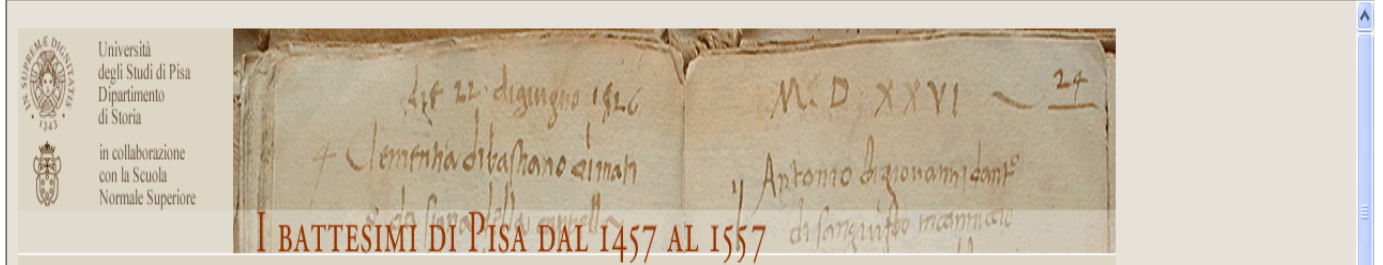 IN SUPREMÆ DIGNITATIS
· 1343 ·
Università
degli Studi di Pisa
Dipartimento
di Storia
in collaborazione
con la Scuola
Normale Superiore
22 digiugno 1526
Clementia dibastiano dimat
M. D XXVI 24
Antonio digiovanni dant°
I BATTESIMI DI PISA DAL 1457 AL 1557